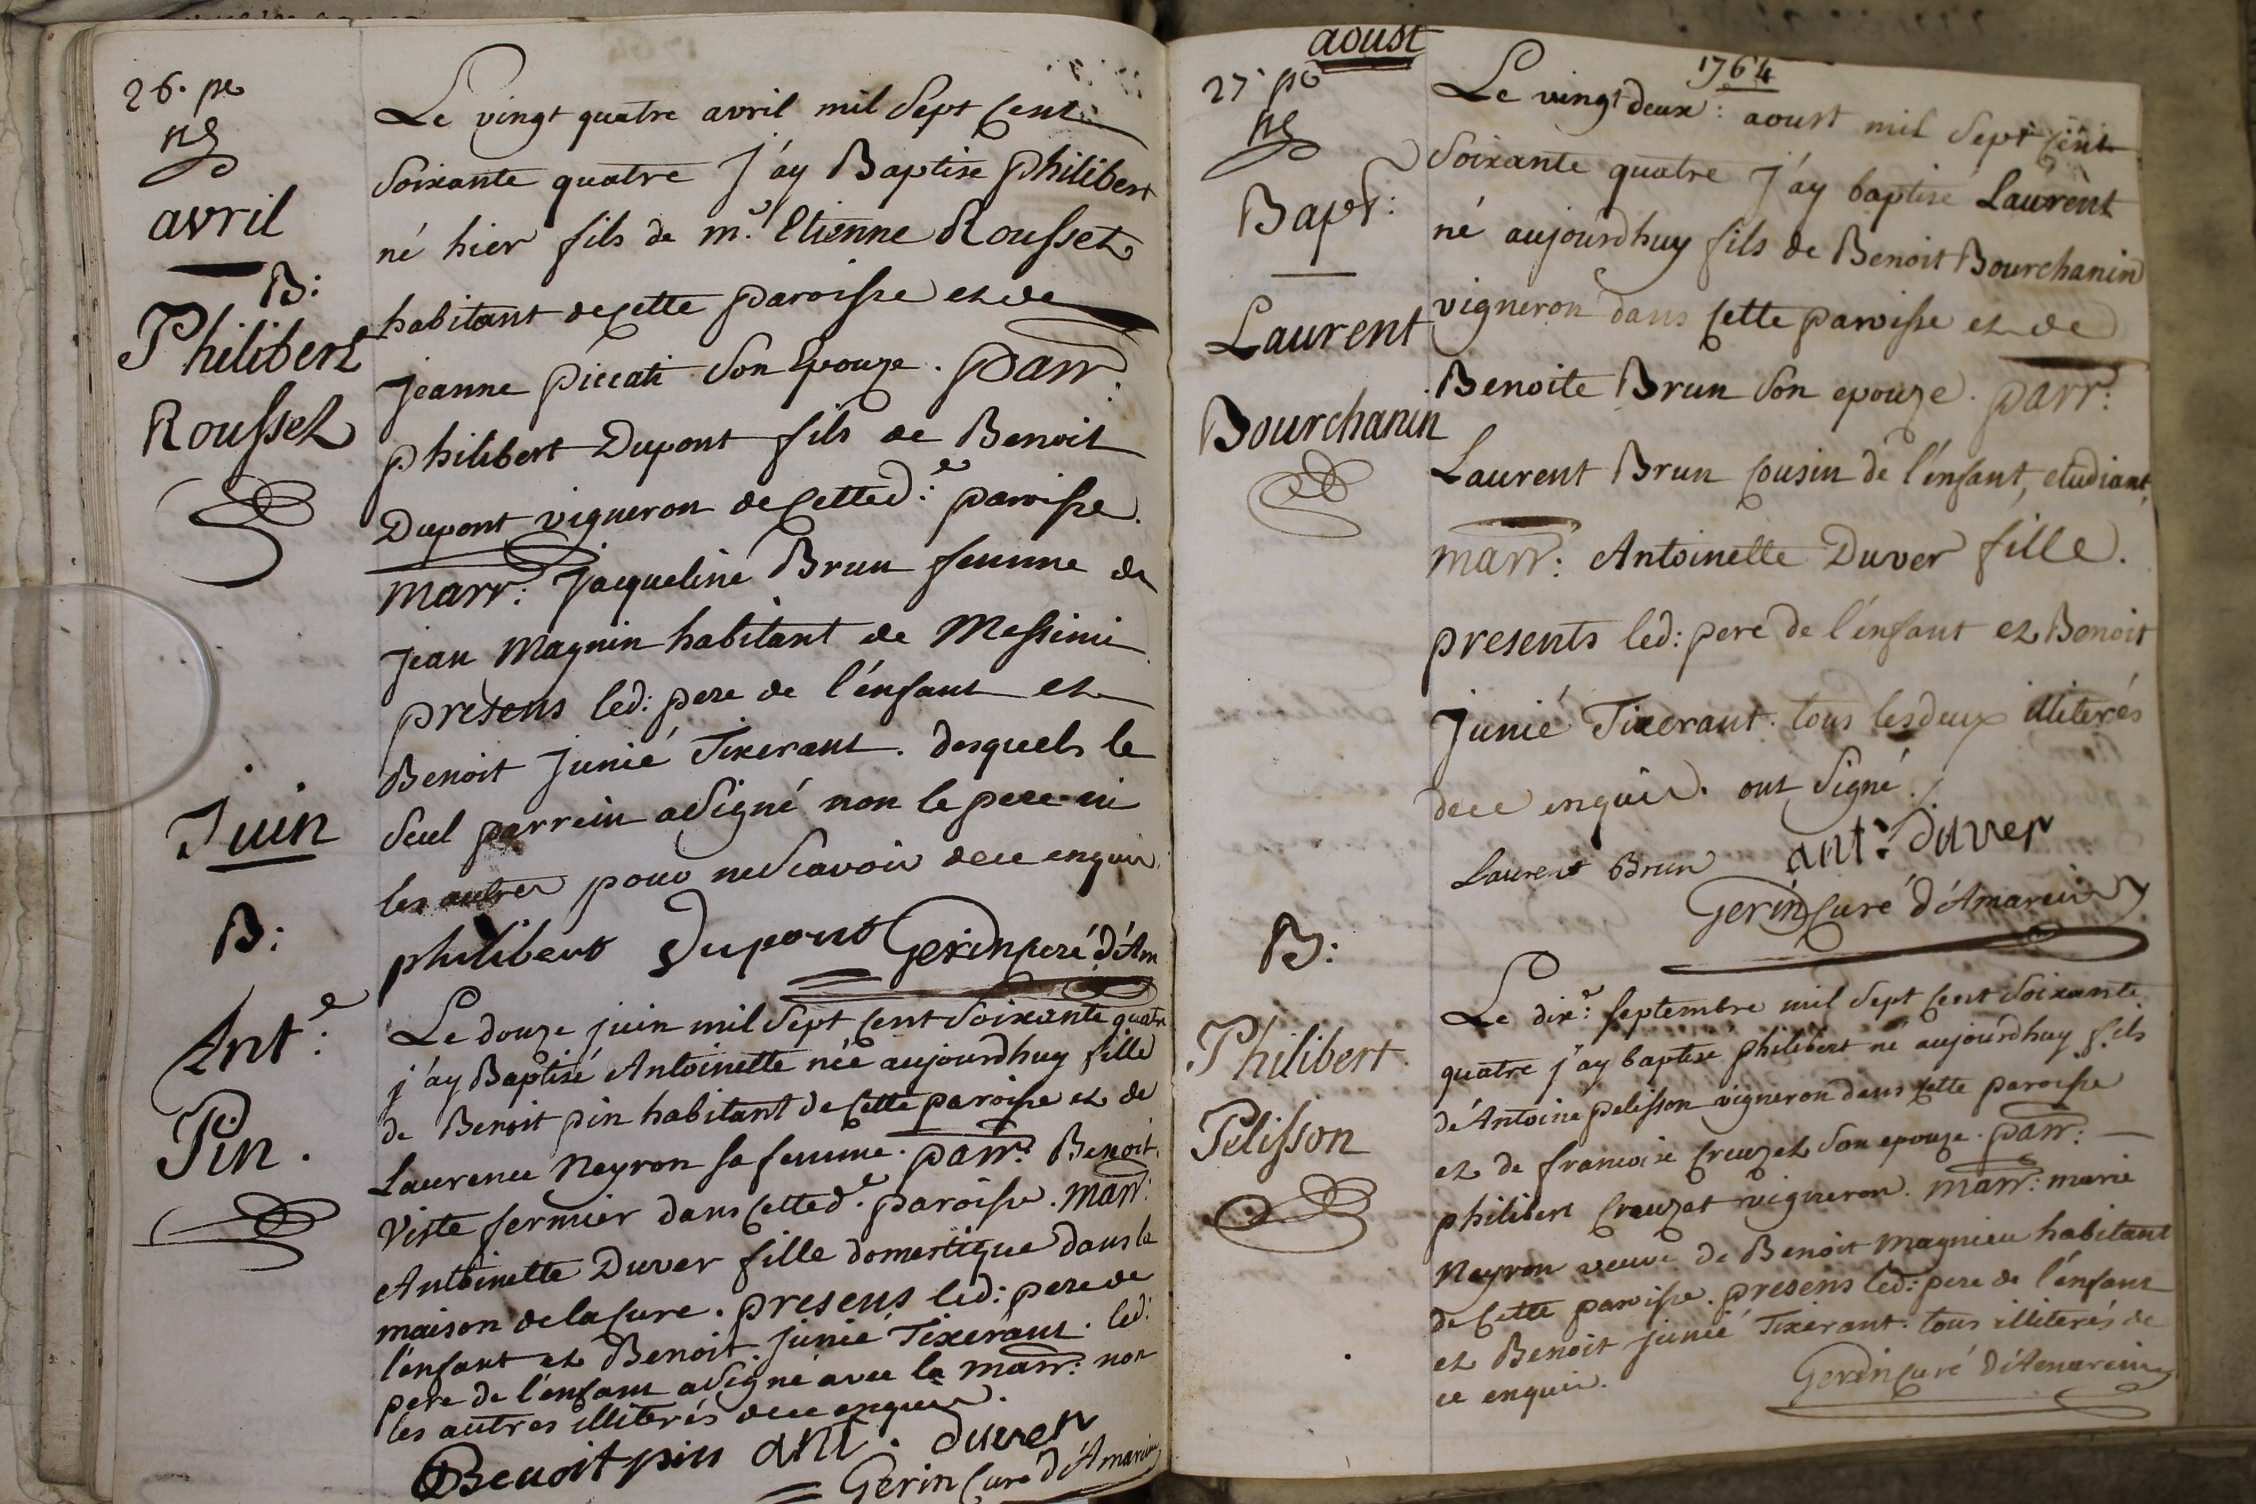 26. pe
avril
B:
Philibert
Rousset
Le vingt quatre avril mil Sept Cent
Soixante quatre J'ay Baptise Philibert
né hier fils de mr. Etienne Rousset
habitant de Cette paroisse et de
jeanne piccati Son Epouze. parr:
philibert Dupont fils de Benoit
Dupont vigneron de Cetted:e paroisse.
marr: Jacqueline Brun femme de
jean Magnin habitant de Messimi
presens led: pere de l'énfant et
Benoit Junié Tixerant. desquels le
Seul parrein a Signé non le pere ni
les autres pour ne Scavoir de ce enquis.
philibert Dupont Gerin curé d'Am
Juin
B:
Ant:e
Pin.
Le douze juin mil Sept Cent Soixante quatre
j'ay Baptisé Antoinette née aujourdhuy fille
de Benoit pin habitant de Cette paroisse et de
Laurence Neyron sa femme. parr: Benoit
Viste fermier dans Cetted:e paroisse. marr:
Antoinette Duver fille domestique dans la
maison de la Cure. presens led: pere de
l'énfant et Benoit Junié Tixerant. led:
pere de l'énfant a Signé avec la marr: non
les autres illiterés de ce enquis.
Benoit pin ant. duver
Gerin Curé d'Amarein
aoust
1764
27. pe
Bapt:
Laurent
Bourchanin
Le vingt deux: aoust mil Sept Cent
Soixante quatre J'ay baptisé Laurent
né aujourdhuy fils de Benoit Bourchanin
vigneron dans Cette paroisse et de
Benoite Brun Son epouze. parr:
Laurent Brun Cousin de l'énfant, etudiant,
marr: Antoinette Duver fille.
presents led: pere de l'énfant et Benoit
Junié Tixerant. tous les deux illiterés
de ce enquis. ont Signé.
Laurent Brun ant: duver
Gerin Curé d'Amarein
B:
Philibert
Pelisson
Le dix:e Septembre mil Sept Cent Soixante
quatre j'ay baptisé philibert né aujourdhuy fils
d'Antoine pelisson vigneron dans Cette paroisse
et de francoise Creuzet Son epouze. parr:
philibert Creuzet vigneron. marr: marie
Neyron veuve de Benoit Magnieu habitant
de Cette paroisse. presens led: pere de l'énfant
et Benoit junié Tixerant. tous illiterés de
ce enquis.
Gerin Curé d'Amarein